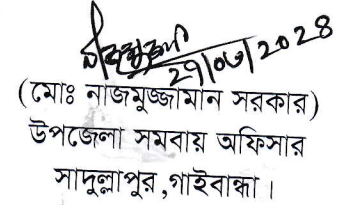 ২৭/০৬/২০২৪
(মোঃ নাজমুজ্জামান সরকার)
উপজেলা সমবায় অফিসার
সাদুল্লাপুর,গাইবান্ধা।